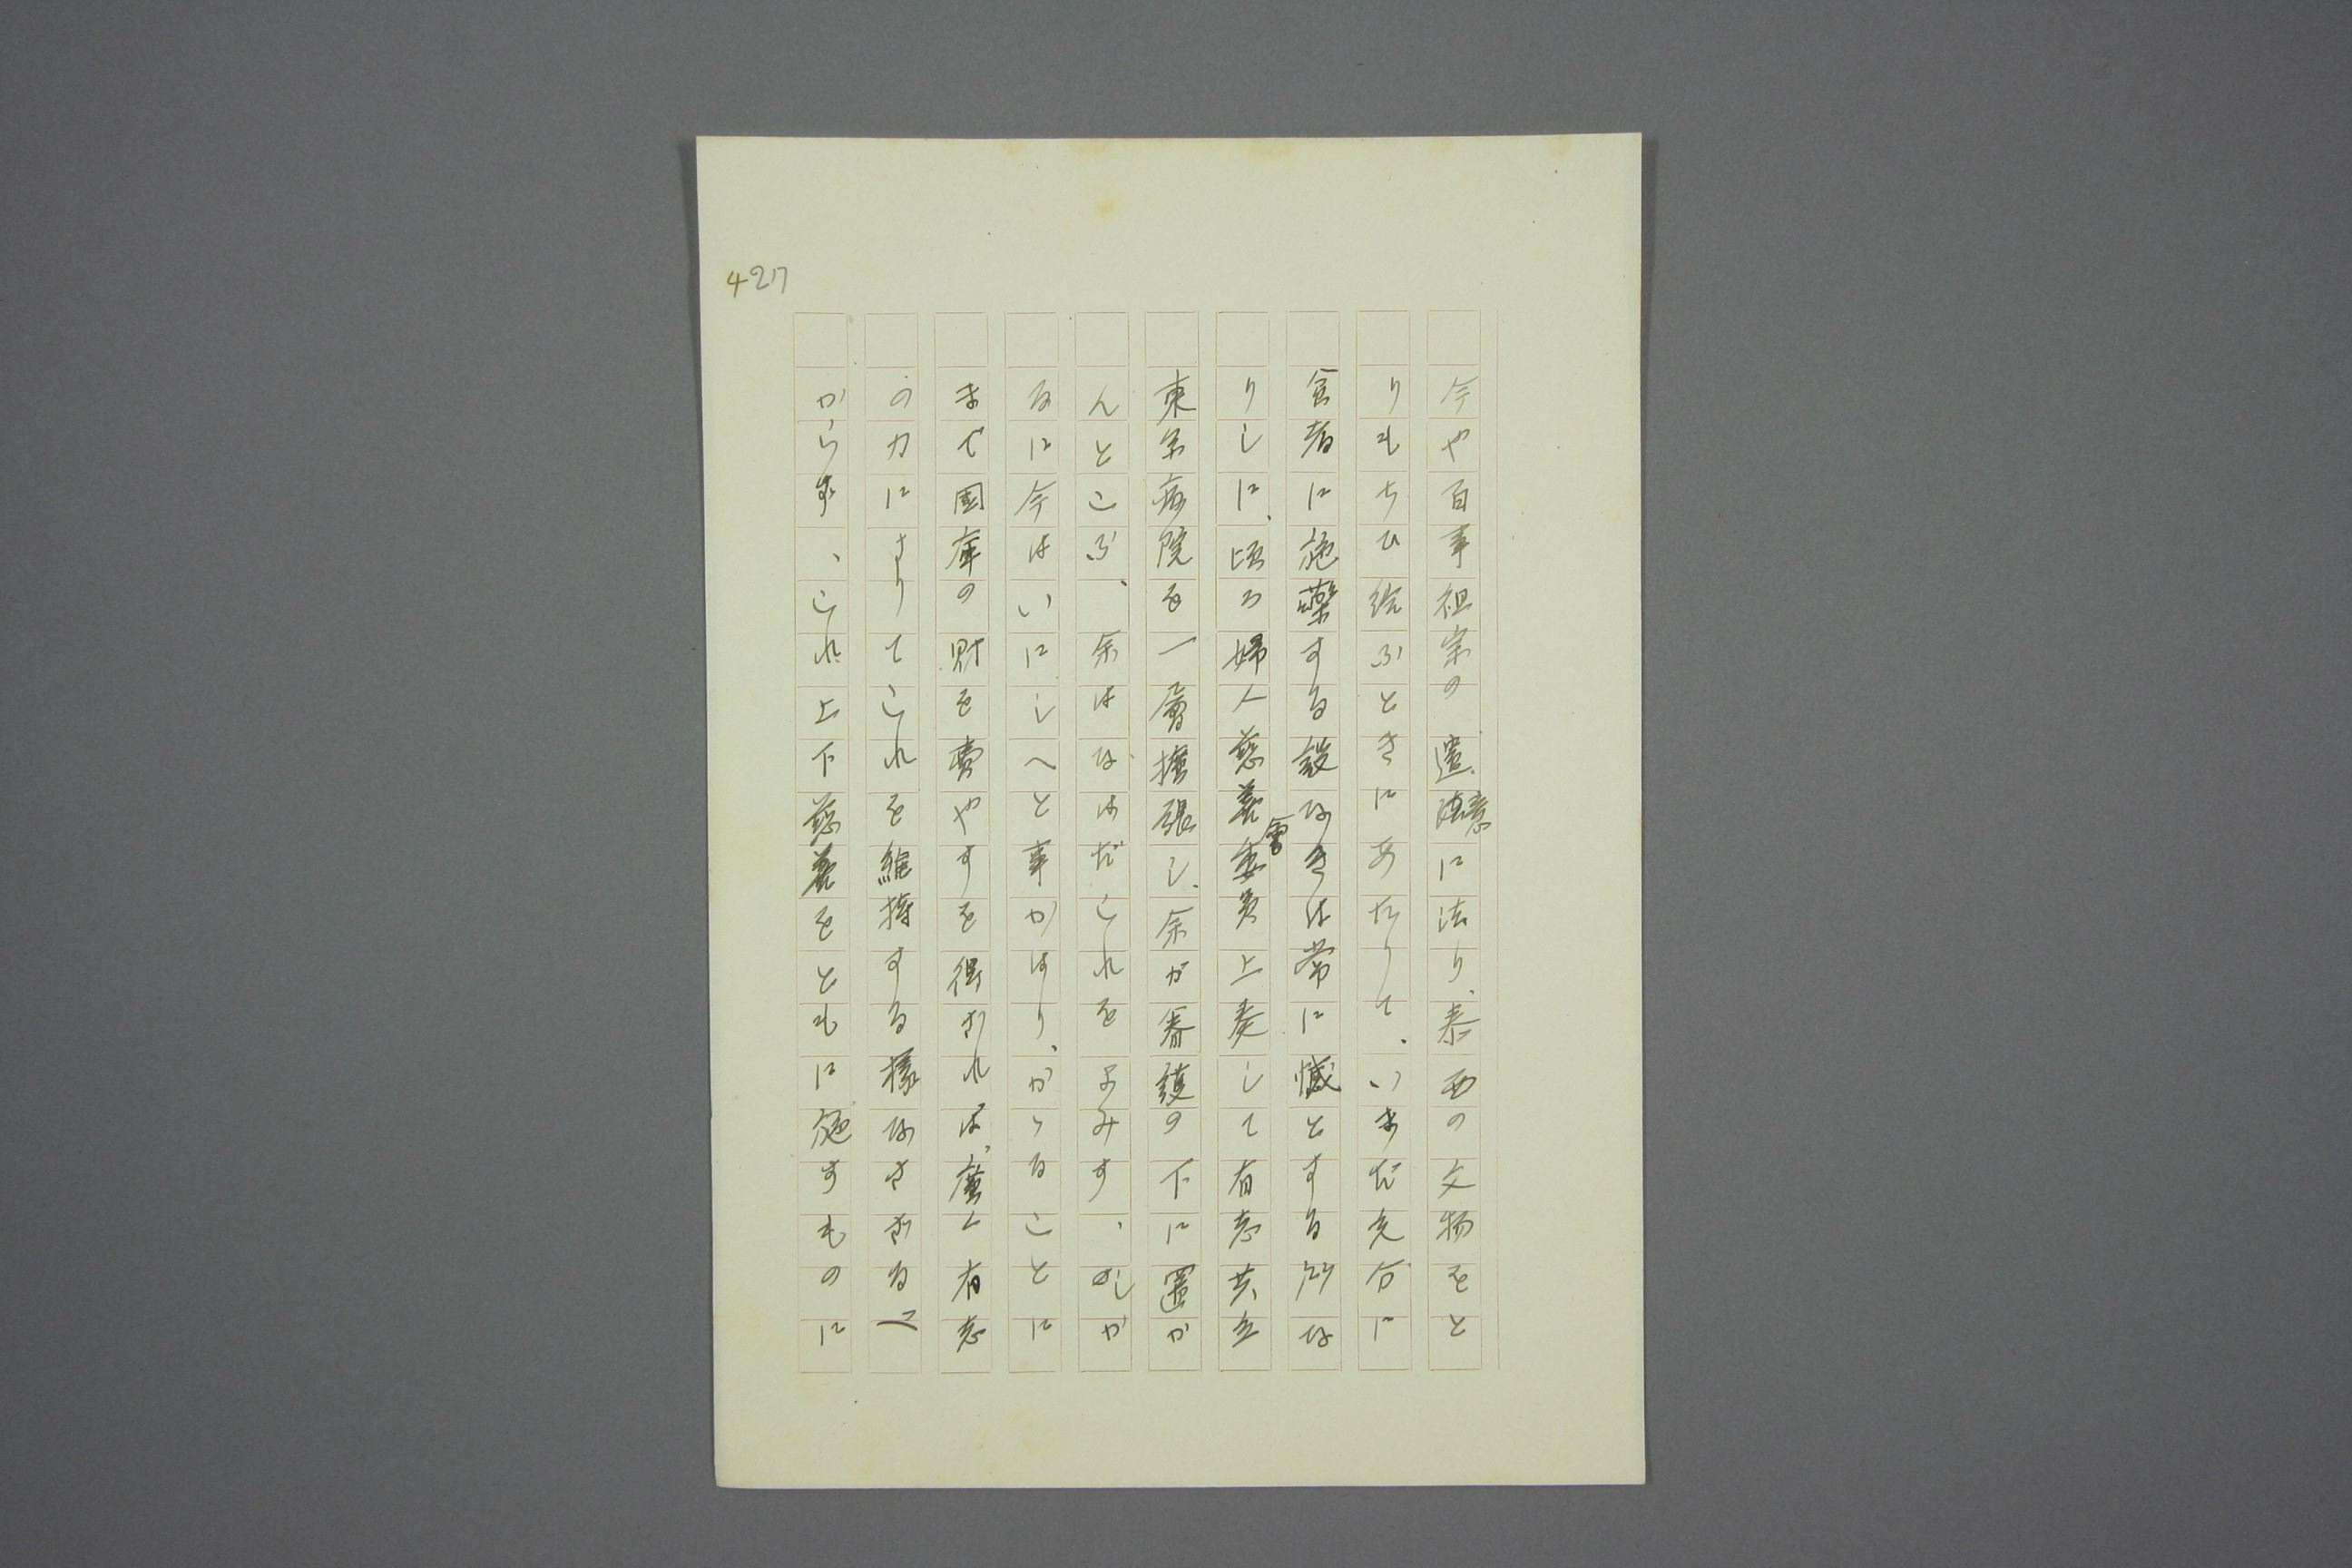 427
今や百事祖宗の遺意に法り、泰西の文物をと
りもちひ給ふときにあたりて、いまだ充分に
貧者に施藥する設なきは常に憾とする所な
りしに、頃ろ婦人慈善會委員上奏して有志共立
東京病院を一層擴張し、余が眷護の下に置か
んとこふ、余はなはだこれをよみす、しか
るに今はいにしへと事かはり、かゝることに
まで國庫の財を費やすを得ざれば、廣く有志
の力によりてこれを維持する樣なさざるべ
からず、これ上下慈善をともに施すものに